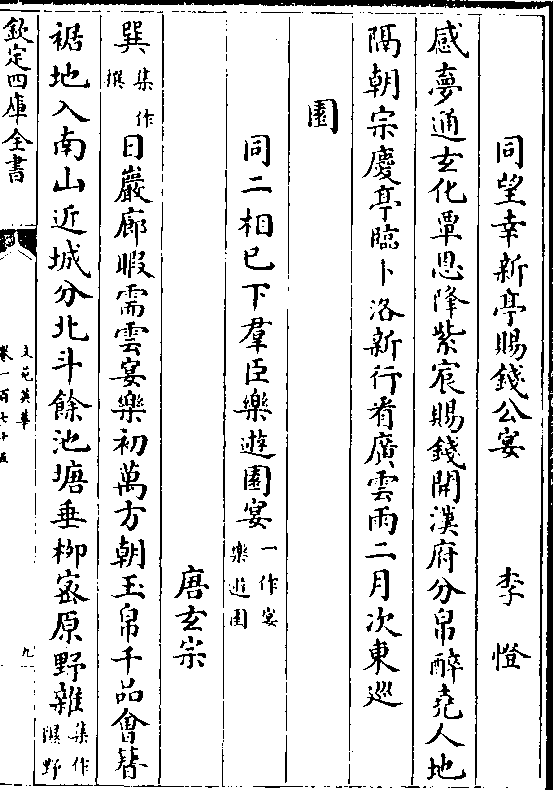 同望幸新亭賜錢公宴　李憕
感夢通玄化覃恩降紫宸賜錢開漢府分帛醉堯人地
隔朝宗慶亭臨卜洛新行看廣雲雨二月次東巡
園
同二相已下羣臣樂遊園宴一作宴樂遊園
唐玄宗
撰集作巽日巖廊暇需雲宴樂初萬方朝玉帛千品會簪
裾地入南山近城分北斗餘池塘垂栁宻原野雜集作隰野
欽定四庫全書
文苑英華
卷一百七十五
九